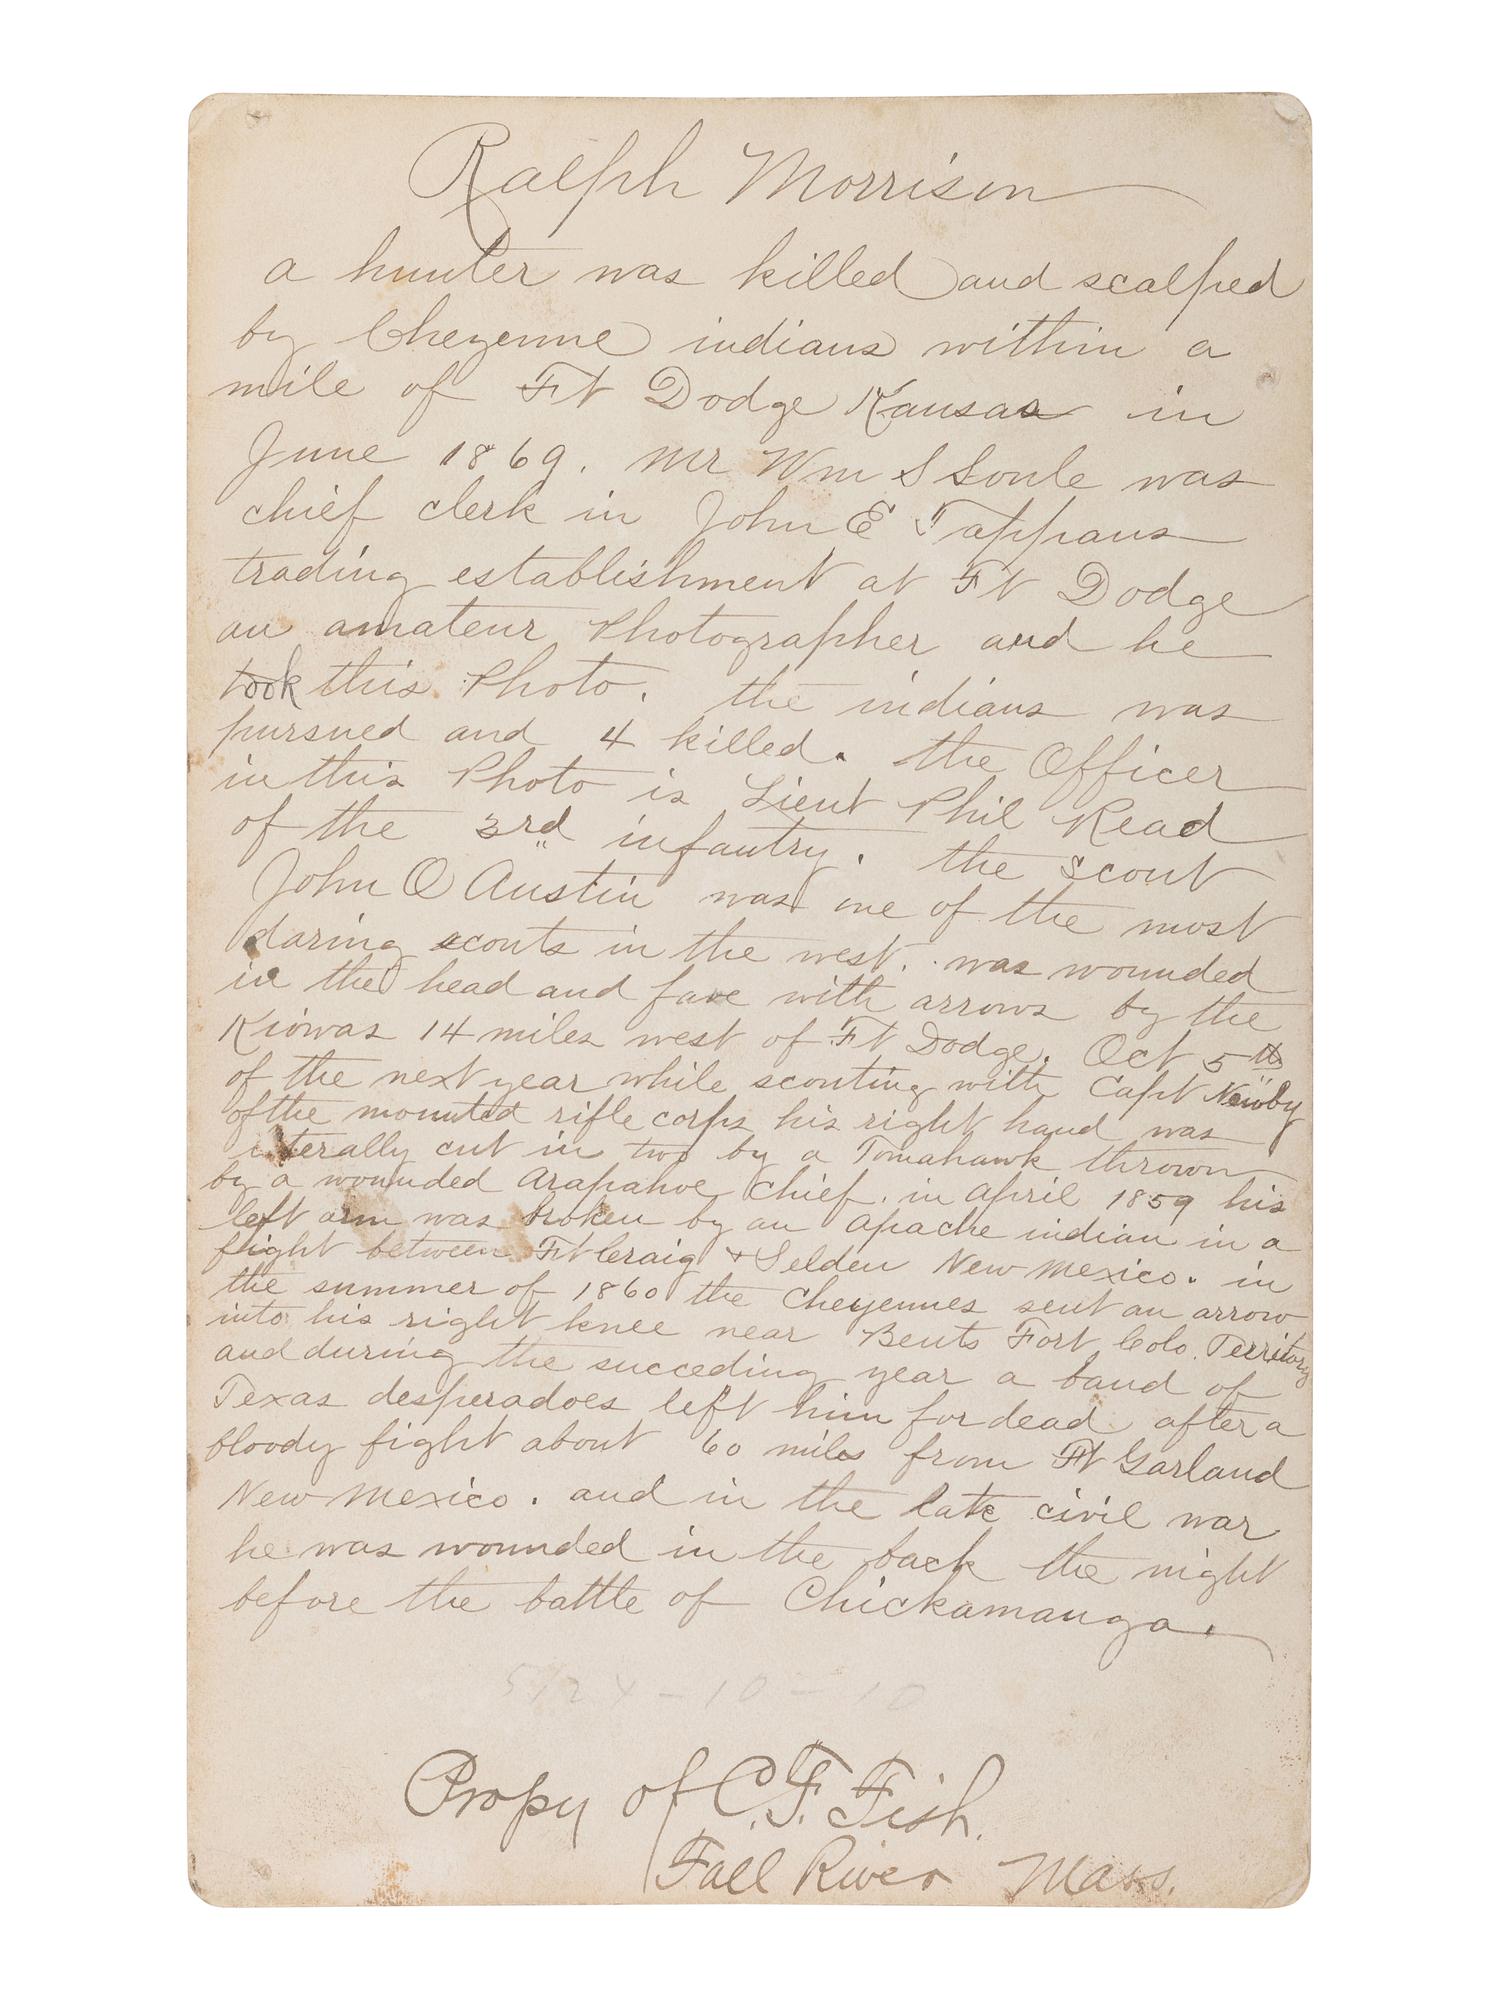 Ralph Morrison
a hunter was killed and scalped
by Cheyenne indians within a
mile of Ft Dodge Kansas in
June 1869. Mr Wm S Soule was
chief clerk in John E Tappans
trading establishment at Ft Dodge
an amateur Photographer and he
took this Photo. the indians was
pursued and 4 killed. the Officer
in this Photo is Lieut Phil Read
of the 3rd infantry. the scout
John O Austin was one of the most
daring scouts in the west. was wounded
in the head and face with arrows by the
Kiowas 14 miles west of Ft Dodge. Oct 5th
of the next year while scouting with Capt Newby
of the mounted rifle corps his right hand was
literally cut in two by a Tomahawk thrown
by a wounded Arapahoe Chief. in April 1859 his
left arm was broken by an apache indian in a
fight between Ft Craig & Selden New Mexico. in
the summer of 1860 the Cheyennes sent an arrow
into his right knee near Bents Fort Colo. Territory
and during the succeding year a band of
Texas desperadoes left him for dead after a
bloody fight about 60 miles from Ft Garland
New Mexico. and in the late civil war
he was wounded in the back the night
before the battle of Chickamauga.
5124-10-10
Propy of C. F. Fish.
Fall River Mass.